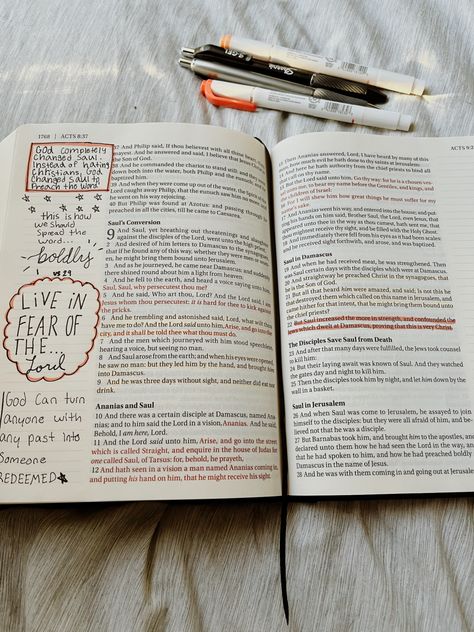 1768 | ACTS 8:37
God completely
Changed Saul.
Instead of hating
Christians, God
Changed Saul to
Preach the Word!
this is how
we should
spread the
word...
boldly
vs 29
LIVE IN
FEAR OF
THE..
Lord
God can turn
anyone with
any past into
someone
REDEEMED
37 And Philip said, If thou believest with all thine heart, thou
mayest. And he answered and said, I believe that Jesus Christ is
the Son of God.
38 And he commanded the chariot to stand still: and they went
down both into the water, both Philip and the eunuch; and he
baptized him.
39 And when they were come up out of the water, the Spirit of the
Lord caught away Philip, that the eunuch saw him no more: and
he went on his way rejoicing.
40 But Philip was found at Azotus: and passing through he
preached in all the cities, till he came to Caesarea.
Saul's Conversion
9 And Saul, yet breathing out threatenings and slaughter
against the disciples of the Lord, went unto the high priest,
2 And desired of him letters to Damascus to the synagogues,
that if he found any of this way, whether they were men or women,
he might bring them bound unto Jerusalem.
3 And as he journeyed, he came near Damascus: and suddenly
there shined round about him a light from heaven:
4 And he fell to the earth, and heard a voice saying unto him,
Saul, Saul, why persecutest thou me?
5 And he said, Who art thou, Lord? And the Lord said, I am
Jesus whom thou persecutest: it is hard for thee to kick against
the pricks.
6 And he trembling and astonished said, Lord, what wilt thou
have me to do? And the Lord said unto him, Arise, and go into the
city, and it shall be told thee what thou must do.
7 And the men which journeyed with him stood speechless,
hearing a voice, but seeing no man.
8 And Saul arose from the earth; and when his eyes were opened,
he saw no man: but they led him by the hand, and brought him
into Damascus.
9 And he was three days without sight, and neither did eat nor
drink.
Ananias and Saul
10 And there was a certain disciple at Damascus, named Ananias;
and to him said the Lord in a vision, Ananias. And he said,
Behold, I am here, Lord.
11 And the Lord said unto him, Arise, and go into the street
which is called Straight, and enquire in the house of Judas for
one called Saul, of Tarsus: for, behold, he prayeth,
12 And hath seen in a vision a man named Ananias coming in,
and putting his hand on him, that he might receive his sight.
13 Then Ananias answered, Lord, I have heard by many of this
man, how much evil he hath done to thy saints at Jerusalem:
14 And here he hath authority from the chief priests to bind all
that call on thy name.
15 But the Lord said unto him, Go thy way: for he is a chosen vessel
unto me, to bear my name before the Gentiles, and kings, and
the children of Israel:
16 For I will shew him how great things he must suffer for my
name's sake.
17 And Ananias went his way, and entered into the house; and putting
his hands on him said, Brother Saul, the Lord, even Jesus, that
appeared unto thee in the way as thou camest, hath sent me, that
thou mightest receive thy sight, and be filled with the Holy Ghost.
18 And immediately there fell from his eyes as it had been scales:
and he received sight forthwith, and arose, and was baptized.
Saul in Damascus
19 And when he had received meat, he was strengthened. Then
was Saul certain days with the disciples which were at Damascus.
20 And straightway he preached Christ in the synagogues, that
he is the Son of God.
21 But all that heard him were amazed, and said; Is not this he
that destroyed them which called on this name in Jerusalem, and
came hither for that intent, that he might bring them bound unto
the chief priests?
22 But Saul increased the more in strength, and confounded the
Jews which dwelt at Damascus, proving that this is very Christ.
The Disciples Save Saul from Death
23 And after that many days were fulfilled, the Jews took counsel
to kill him:
24 But their laying await was known of Saul. And they watched
the gates day and night to kill him.
25 Then the disciples took him by night, and let him down by the
wall in a basket.
Saul in Jerusalem
26 And when Saul was come to Jerusalem, he assayed to join
himself to the disciples: but they were all afraid of him, and believed
not that he was a disciple.
27 But Barnabas took him, and brought him to the apostles, and
declared unto them how he had seen the Lord in the way, and
that he had spoken to him, and how he had preached boldly at
Damascus in the name of Jesus.
28 And he was with them coming in and going out at Jerusalem.